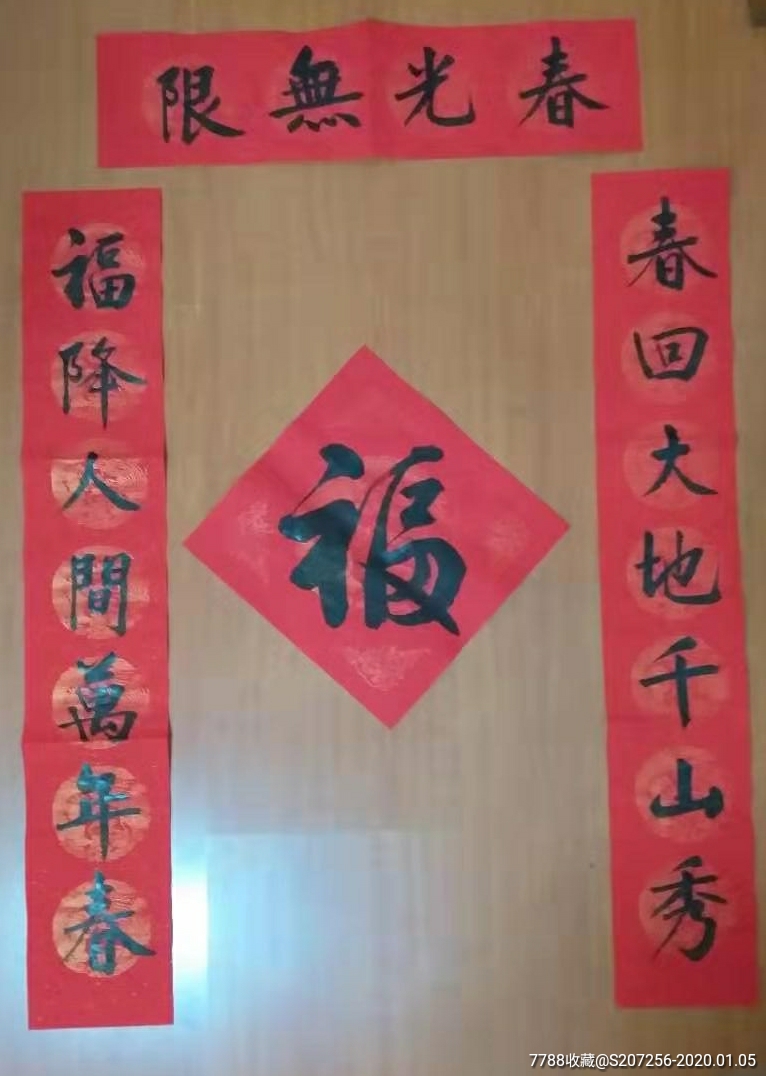 春光無限
春回大地千山秀
福降人間萬年春
福
7788收藏@S207256-2020.01.05